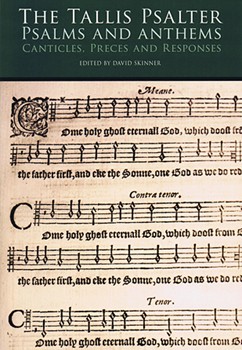 The Tallis Psalter
Psalms and anthems
Canticles, Preces and Responses
EDITED BY DAVID SKINNER
Meane.
Ome holy ghost eternall God, which doost fro
the father first, and eke the Sonne, one God as we do red
Contra tenor.
Ome holy ghost eternall God, which doost from
the father first, and eke the Sonne, one God as we do re
Tenor.
Ome holy ghost eternall God, which doost from G